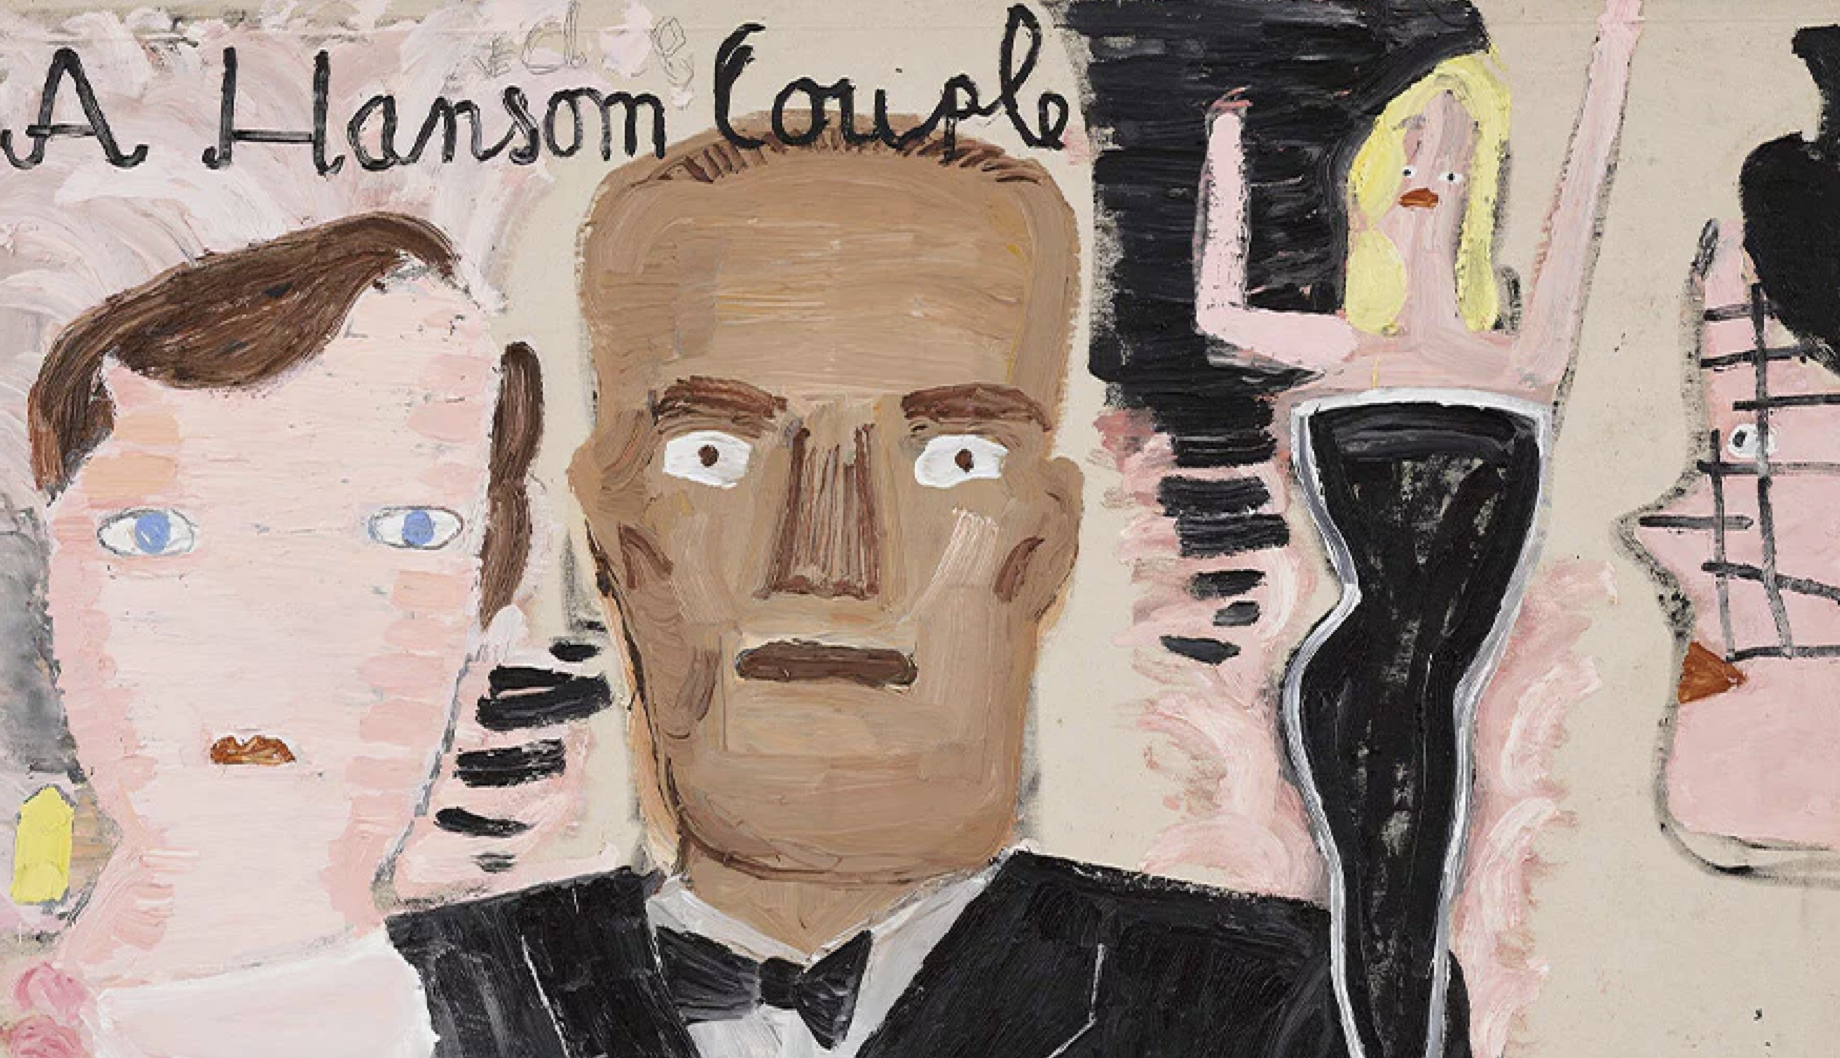 A Hanson Couple